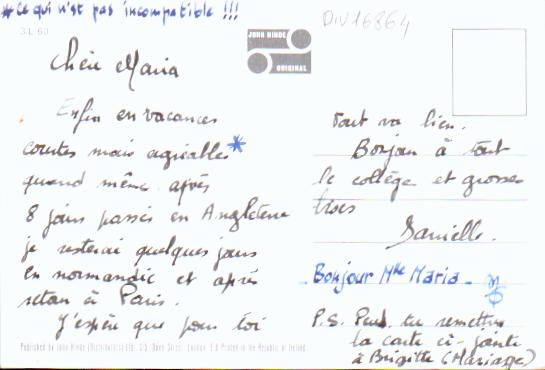 *Ce qui n'est pas incompatible !!!
3L 60
DIV16864
JOHN HINDE
ORIGINAL
Chère Maria
Enfin en vacances
courtes mais agréables*
quand même. après
8 jours passés en Angleterre
je resterai quelques jours
en normandie et après
retour à Paris.
J'espère que pour toi
tout va bien.
Bonjour à tout
le collège et grosses
bises
Danielle.
Bonjour Mlle Maria -
P.S. Peux tu remettre
la carte ci-jointe
à Brigitte (Mariage)
Published by John Hinde (Distributors) Ltd., London. Printed in the Republic of Ireland